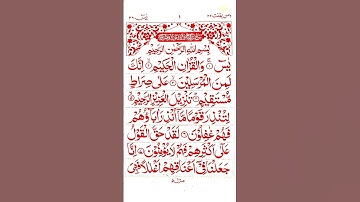 بِسْمِ اللهِ الرَّحْمٰنِ الرَّحِيْمِ
يٰسٓ ۚ وَالْقُرْاٰنِ الْحَكِيْمِ ۙ اِنَّكَ
لَمِنَ الْمُرْسَلِيْنَ ۙ عَلٰى صِرَاطٍ
مُّسْتَقِيْمٍ ؕ تَنْزِيْلَ الْعَزِيْزِ الرَّحِيْمِ ۙ
لِتُنْذِرَ قَوْمًا مَّاۤ اُنْذِرَ اٰبَآؤُهُمْ
فَهُمْ غٰفِلُوْنَ ۞ لَقَدْ حَقَّ الْقَوْلُ
عَلٰۤى اَكْثَرِهِمْ فَهُمْ لَا يُؤْمِنُوْنَ ۞ اِنَّا
جَعَلْنَا فِيْۤ اَعْنَاقِهِمْ اَغْلٰلًا فَهِيَ